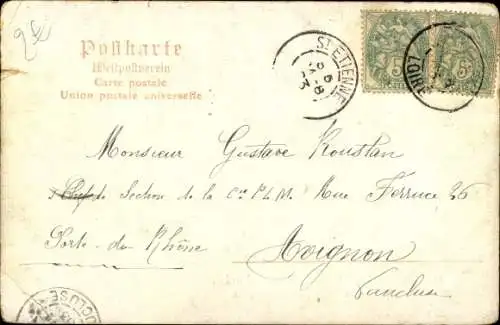 Postkarte
Weltpostverein
Carte postale
Union postale universelle
ST ETIENNE
LOIRE
5
5
Monsieur Gustave Roustan
Chef de Section de la Cie P.L.M. Rue Ferruce 26
Porte du Rhône
Avignon
Vaucluse
VAUCLUSE